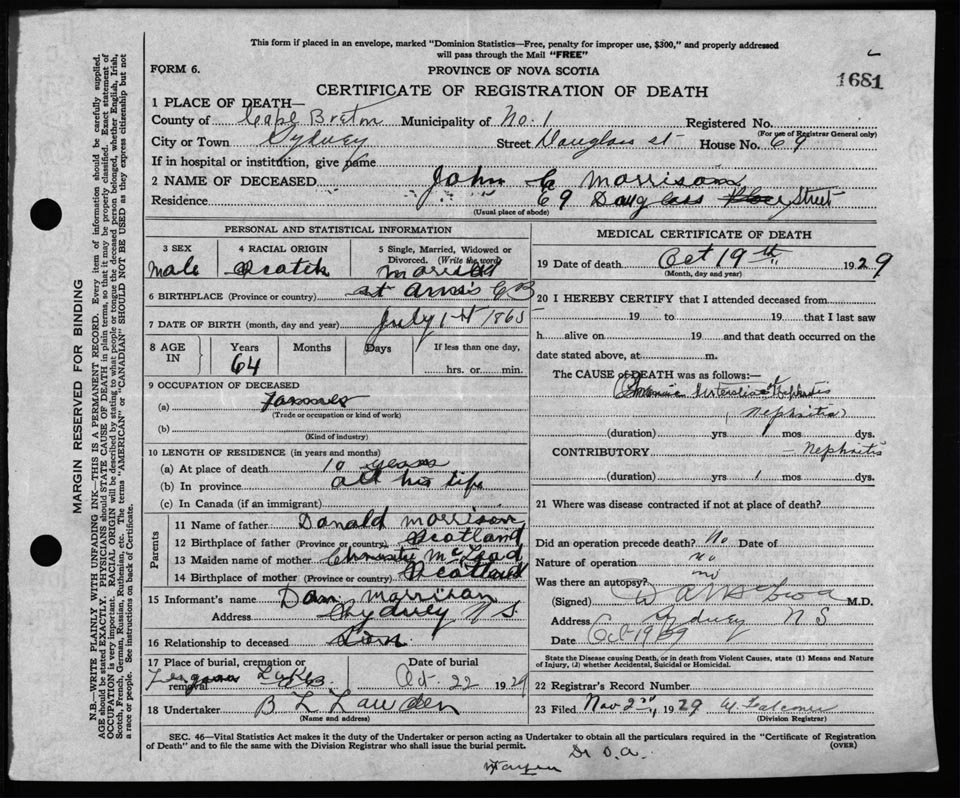 This form if placed in an envelope, marked "Dominion Statistics—Free, penalty for improper use, $300," and properly addressed
will pass through the Mail "FREE"
FORM 6.
PROVINCE OF NOVA SCOTIA
1681
CERTIFICATE OF REGISTRATION OF DEATH
1 PLACE OF DEATH—
County of Cape Breton Municipality of No. 1 Registered No.
(For use of Registrar General only)
City or Town Sydney Street Douglass st House No. 69
If in hospital or institution, give name
2 NAME OF DECEASED John C Morrison
Residence 69 Douglass Street
(Usual place of abode)
PERSONAL AND STATISTICAL INFORMATION
3 SEX 4 RACIAL ORIGIN 5 Single, Married, Widowed or Divorced. (Write the word)
Male Scotch Married
6 BIRTHPLACE (Province or country) St Anns C B
7 DATE OF BIRTH (month, day and year) July 1st 1865
8 AGE IN Years Months Days If less than one day,
64 hrs. or min.
9 OCCUPATION OF DECEASED
(a)
(Trade or occupation or kind of work)
(b)
(Kind of industry)
10 LENGTH OF RESIDENCE (in years and months)
(a) At place of death 10 years
(b) In province all his life
(c) In Canada (if an immigrant)
Parents
11 Name of father Donald Morrison
12 Birthplace of father (Province or country) Scotland
13 Maiden name of mother McLeod
14 Birthplace of mother (Province or country) Scotland
15 Informant's name Dan Morrison
Address Sydney N S
16 Relationship to deceased Son
17 Place of burial, cremation or removal Date of burial
Oct. 22 1929
18 Undertaker B L
(Name and address)
MEDICAL CERTIFICATE OF DEATH
19 Date of death Oct 19th 1929
(Month, day and year)
20 I HEREBY CERTIFY that I attended deceased from
19 to 19 that I last saw
h alive on 19 and that death occurred on the
date stated above, at m.
The CAUSE OF DEATH was as follows:—
Chronic Nephritis
Nephritis
(duration) yrs 1 mos dys.
CONTRIBUTORY Nephritis
(duration) yrs 1 mos dys.
21 Where was disease contracted if not at place of death?
Did an operation precede death? No Date of
Nature of operation no
Was there an autopsy? no
(Signed) M.D.
Address Sydney N S
Date Oct 19 29
State the Disease causing Death, or in death from Violent Causes, state (1) Means and Nature
of Injury, (2) whether Accidental, Suicidal or Homicidal.
22 Registrar's Record Number
23 Filed Nov 2nd, 1929
(Division Registrar)
SEC. 46—Vital Statistics Act makes it the duty of the Undertaker or person acting as Undertaker to obtain all the particulars required in the "Certificate of Registration
of Death" and to file the same with the Division Registrar who shall issue the burial permit. (OVER)
Dr D. A.
MARGIN RESERVED FOR BINDING
N.B.—WRITE PLAINLY WITH UNFADING INK—THIS IS A PERMANENT RECORD. Every item of information should be carefully supplied.
AGE should be stated EXACTLY. PHYSICIANS should STATE CAUSE OF DEATH in plain terms, so that it may be properly classified. Exact statement of
OCCUPATION is very important. RACIAL ORIGIN will be described by stating to what people or tongue the deceased person belonged, whether English, Irish,
Scotch, French, German, Russian, Ruthenian, etc. The terms "AMERICAN" or "CANADIAN" SHOULD NOT BE USED as they express citizenship but not
a race or people. See instructions on back of Certificate.